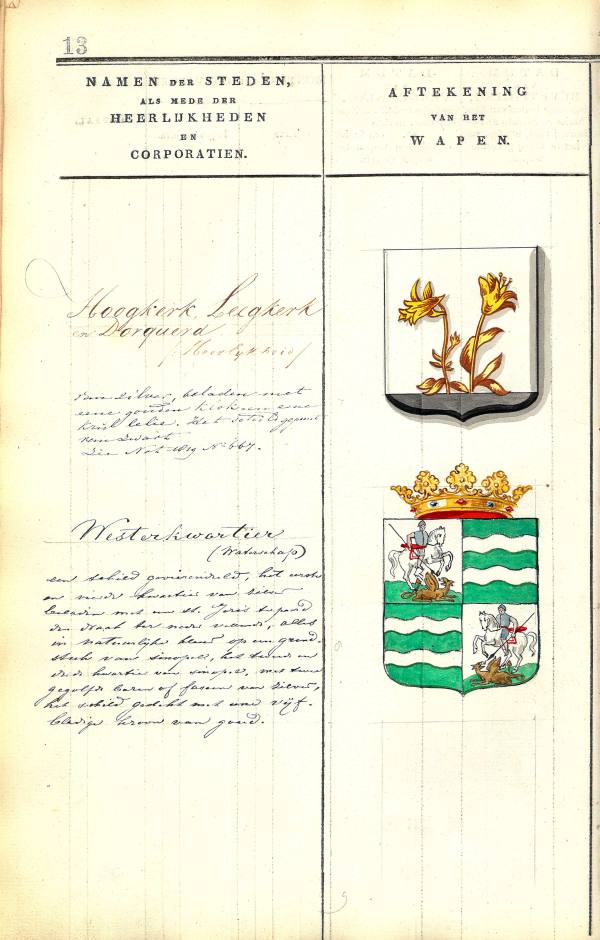 13
NAMEN DER STEDEN,
ALS MEDE DER
HEERLIJKHEDEN
EN
CORPORATIEN.
AFTEKENING
VAN HET
WAPEN.
Hoogkerk, Leegkerk
en Dorquerd
(Heerlijkheid)
van zilver, beladen met
eene gouden klok en eene
krul lelie. Het
van zwart
Zie Not. 1819 No. 667.
Westerkwartier
(Waterschap)
een schild gevierendeeld, het eerste
en vierde kwartier van zilver
beladen met een St. Joris te paard
den draak ter neder vellende, alles
in natuurlijke kleur op een grond-
stuk van sinopel, het tweede en
derde kwartier van sinopel, met twee
gegolfde baren of fascen van zilver,
het schild gedekt met eene vijf-
bladige kroon van goud.